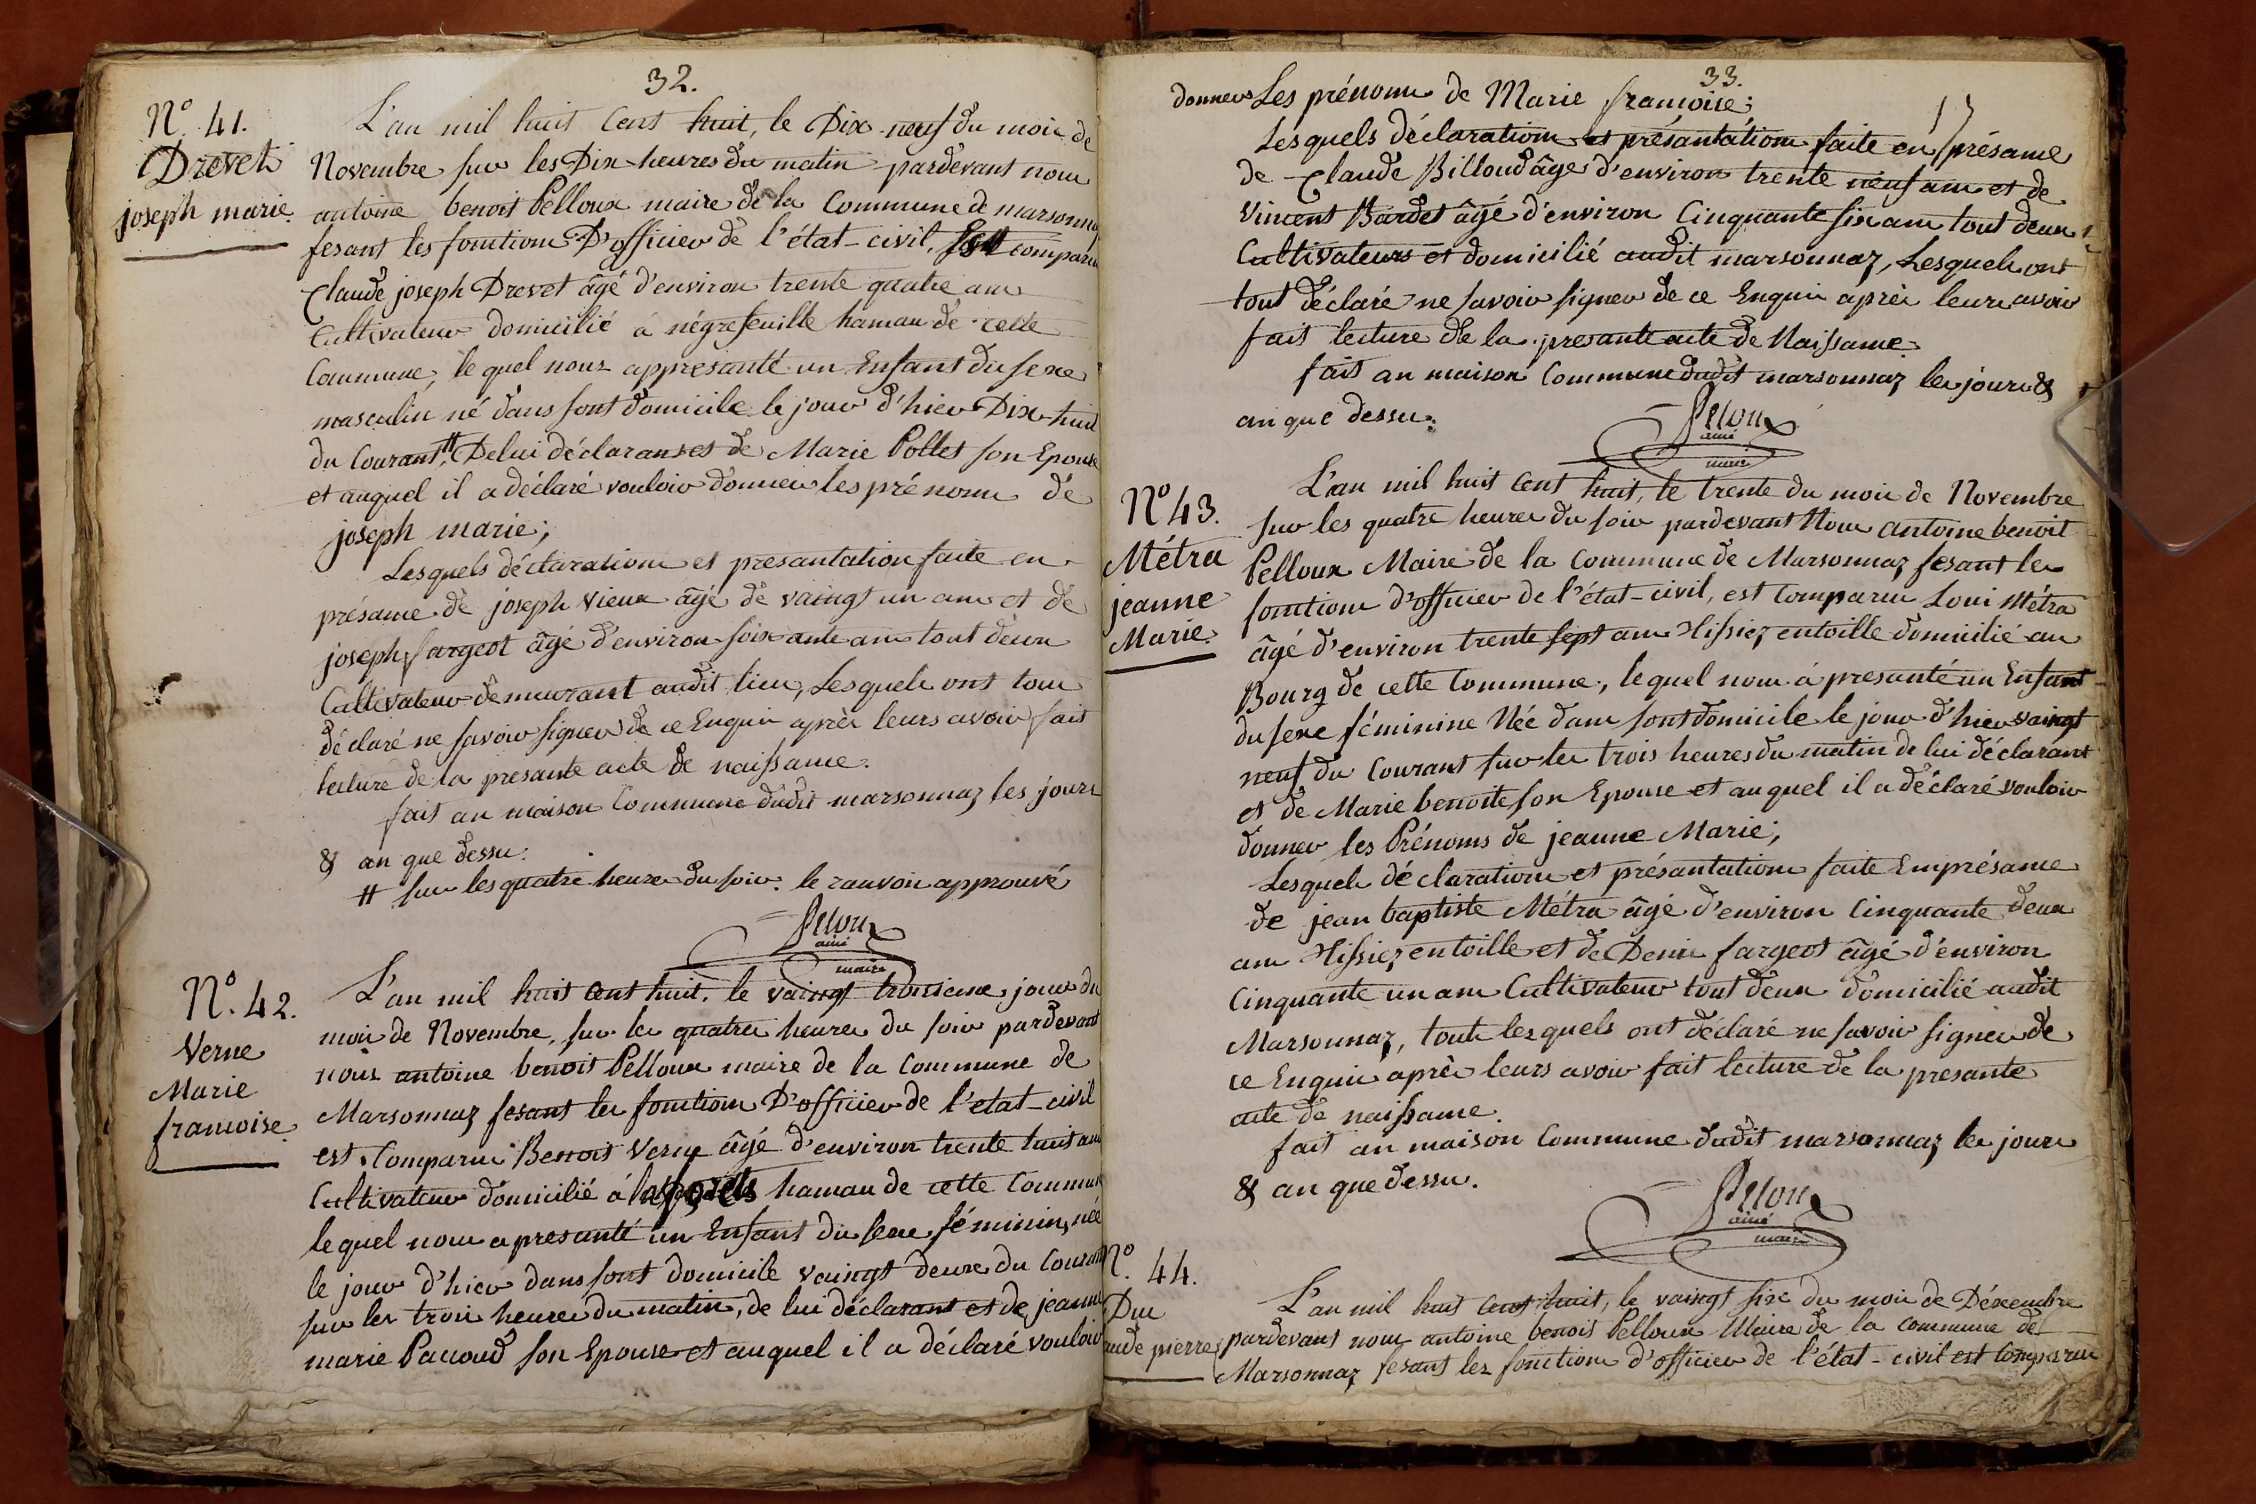 32.
N.º 41.
Drevet
joseph marie.
L'an mil huit Cent huit, le Dix neuf du mois de
Novembre sur les Dix heures du matin pardevant nous
antoine benoit Pelloux maire de la Commune de marsonnaz
fesant les fonctions D'officier de l'état-civil, Est comparu
Claude joseph Drevet âgé d'environ trente quatre ans
Cultivateur domicilié á négrefeuille hamau de cette
Commune, lequel nous appresanté un Enfant du sexe
masculin né dans sont domicile le jour d'hier Dix-huit
du Courant, # De lui déclarant et de Marie Pollet son Epouse
et auquel il a déclaré vouloir donner les prénoms de
joseph marie;
Lesquels déclaration et presantation faite en
présance de joseph Vieux âgé de vaingt un ans et de
joseph fargeot âgé d'environ soixante ans tout deux
Cultivateur demeurant audit lieu, Lesquels ont tous
déclaré ne savoir signer de ce Enquis après leurs avoir fait
lecture de la presante acte de naissance.
fait an maison Commune dudit marsonnaz les jours
& an que dessu.
# sur les quatre heure du soir. le ranvoi approuvé
Peloux
ainé
maire
N.º 42.
Verne
Marie
francoise.
L'an mil huit Cent huit, le vaingt troisieme jour du
mois de Novembre, sur les quatre heures du soir pardevant
nous antoine benoit Pelloux maire de la Commune de
Marsonnaz fesant les fonctions D'officier de l'etat-civil
est Comparu Benoit Verne âgé d'environ trente huit ans
Cultivateur domicilié á hamau de cette Commune
lequel nous a presanté un Enfant du sexe féminin, née
le jour d'hier dans sont domicile vaingt deux du Courant
sur les trois heures du matin, de lui déclarant et de jeanne
marie Pacoud son Epouse et auquel il a déclaré vouloir
33.
donner Les prénoms de Marie francoise;
Lesquels déclaration et présantation faite en présance
de Claude Billoud âgé d'environ trente neuf ans et de
Vincent Bardet âgé d'environ Cinquante six ans tout deux
Cultivateurs et domicilié audit marsonnaz, Lesquels ont
tout déclaré ne savoir signer de ce Enquis après leurs avoir
fait lecture de la presante acte de Naissance.
fait an maison Commune dudit marsonnaz les jours &
an que dessu.
Peloux
ainé
maire
Nº 43.
Métra
jeanne
Marie.
L'an mil huit Cent huit, le trente du mois de Novembre
sur les quatre heures du soir pardevant Nous antoine benoit
Pelloux Maire de la Commune de Marsonnaz fesant les
fonctions d'officier de l'état-civil, est Comparu Loui Métra
âgé d'environ trente sept ans Tissiez entoille domicilié au
Bourg de cette Commune, lequel nous à presanté un Enfant
du sexe féminine Née dans sont domicile le jour d'hier vaingt
neuf du Courant sur les trois heures du matin de lui déclarant
et de Marie benoite son Epouse et auquel il a déclaré vouloir
donner les Prénoms de jeanne Marie;
Lesquels déclaration et présantation faite Emprésance
de jean baptiste Métra âgé d'environ Cinquante deux
ans Tissiez entoille et de Denis fargeot âgé d'environ
Cinquante un ans Cultivateur tout deux domicilié audit
Marsonnaz, touts lesquels ont déclaré ne savoir signer de
ce Enquis après leurs avoir fait lecture de la presante
acte de naissance.
fait an maison Commune dudit marsonnaz les jours
& an que dessu.
Peloux
ainé
maire
Nº. 44.
Duc
aude pierre
L'an mil huit Cent huit, le vaingt six du mois de Décembre
pardevant nous antoine benoit Pelloux Maire de la Commune de
Marsonnaz fesant les fonctions d'officier de l'état-civil est Comparu